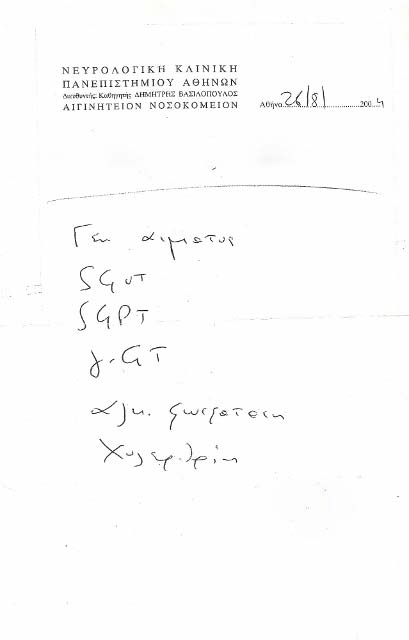 ΝΕΥΡΟΛΟΓΙΚΗ ΚΛΙΝΙΚΗ
ΠΑΝΕΠΙΣΤΗΜΙΟΥ ΑΘΗΝΩΝ
Διευθυντής: Καθηγητής ΔΗΜΗΤΡΗΣ ΒΑΣΙΛΟΠΟΥΛΟΣ
ΑΙΓΙΝΗΤΕΙΟΝ ΝΟΣΟΚΟΜΕΙΟΝ
Αθήνα 26/8/ 2004
Γεν αιματος
SGOT
SGPT
γ-GT
αλκ. φωσφαταση
Χολερυθρίνη